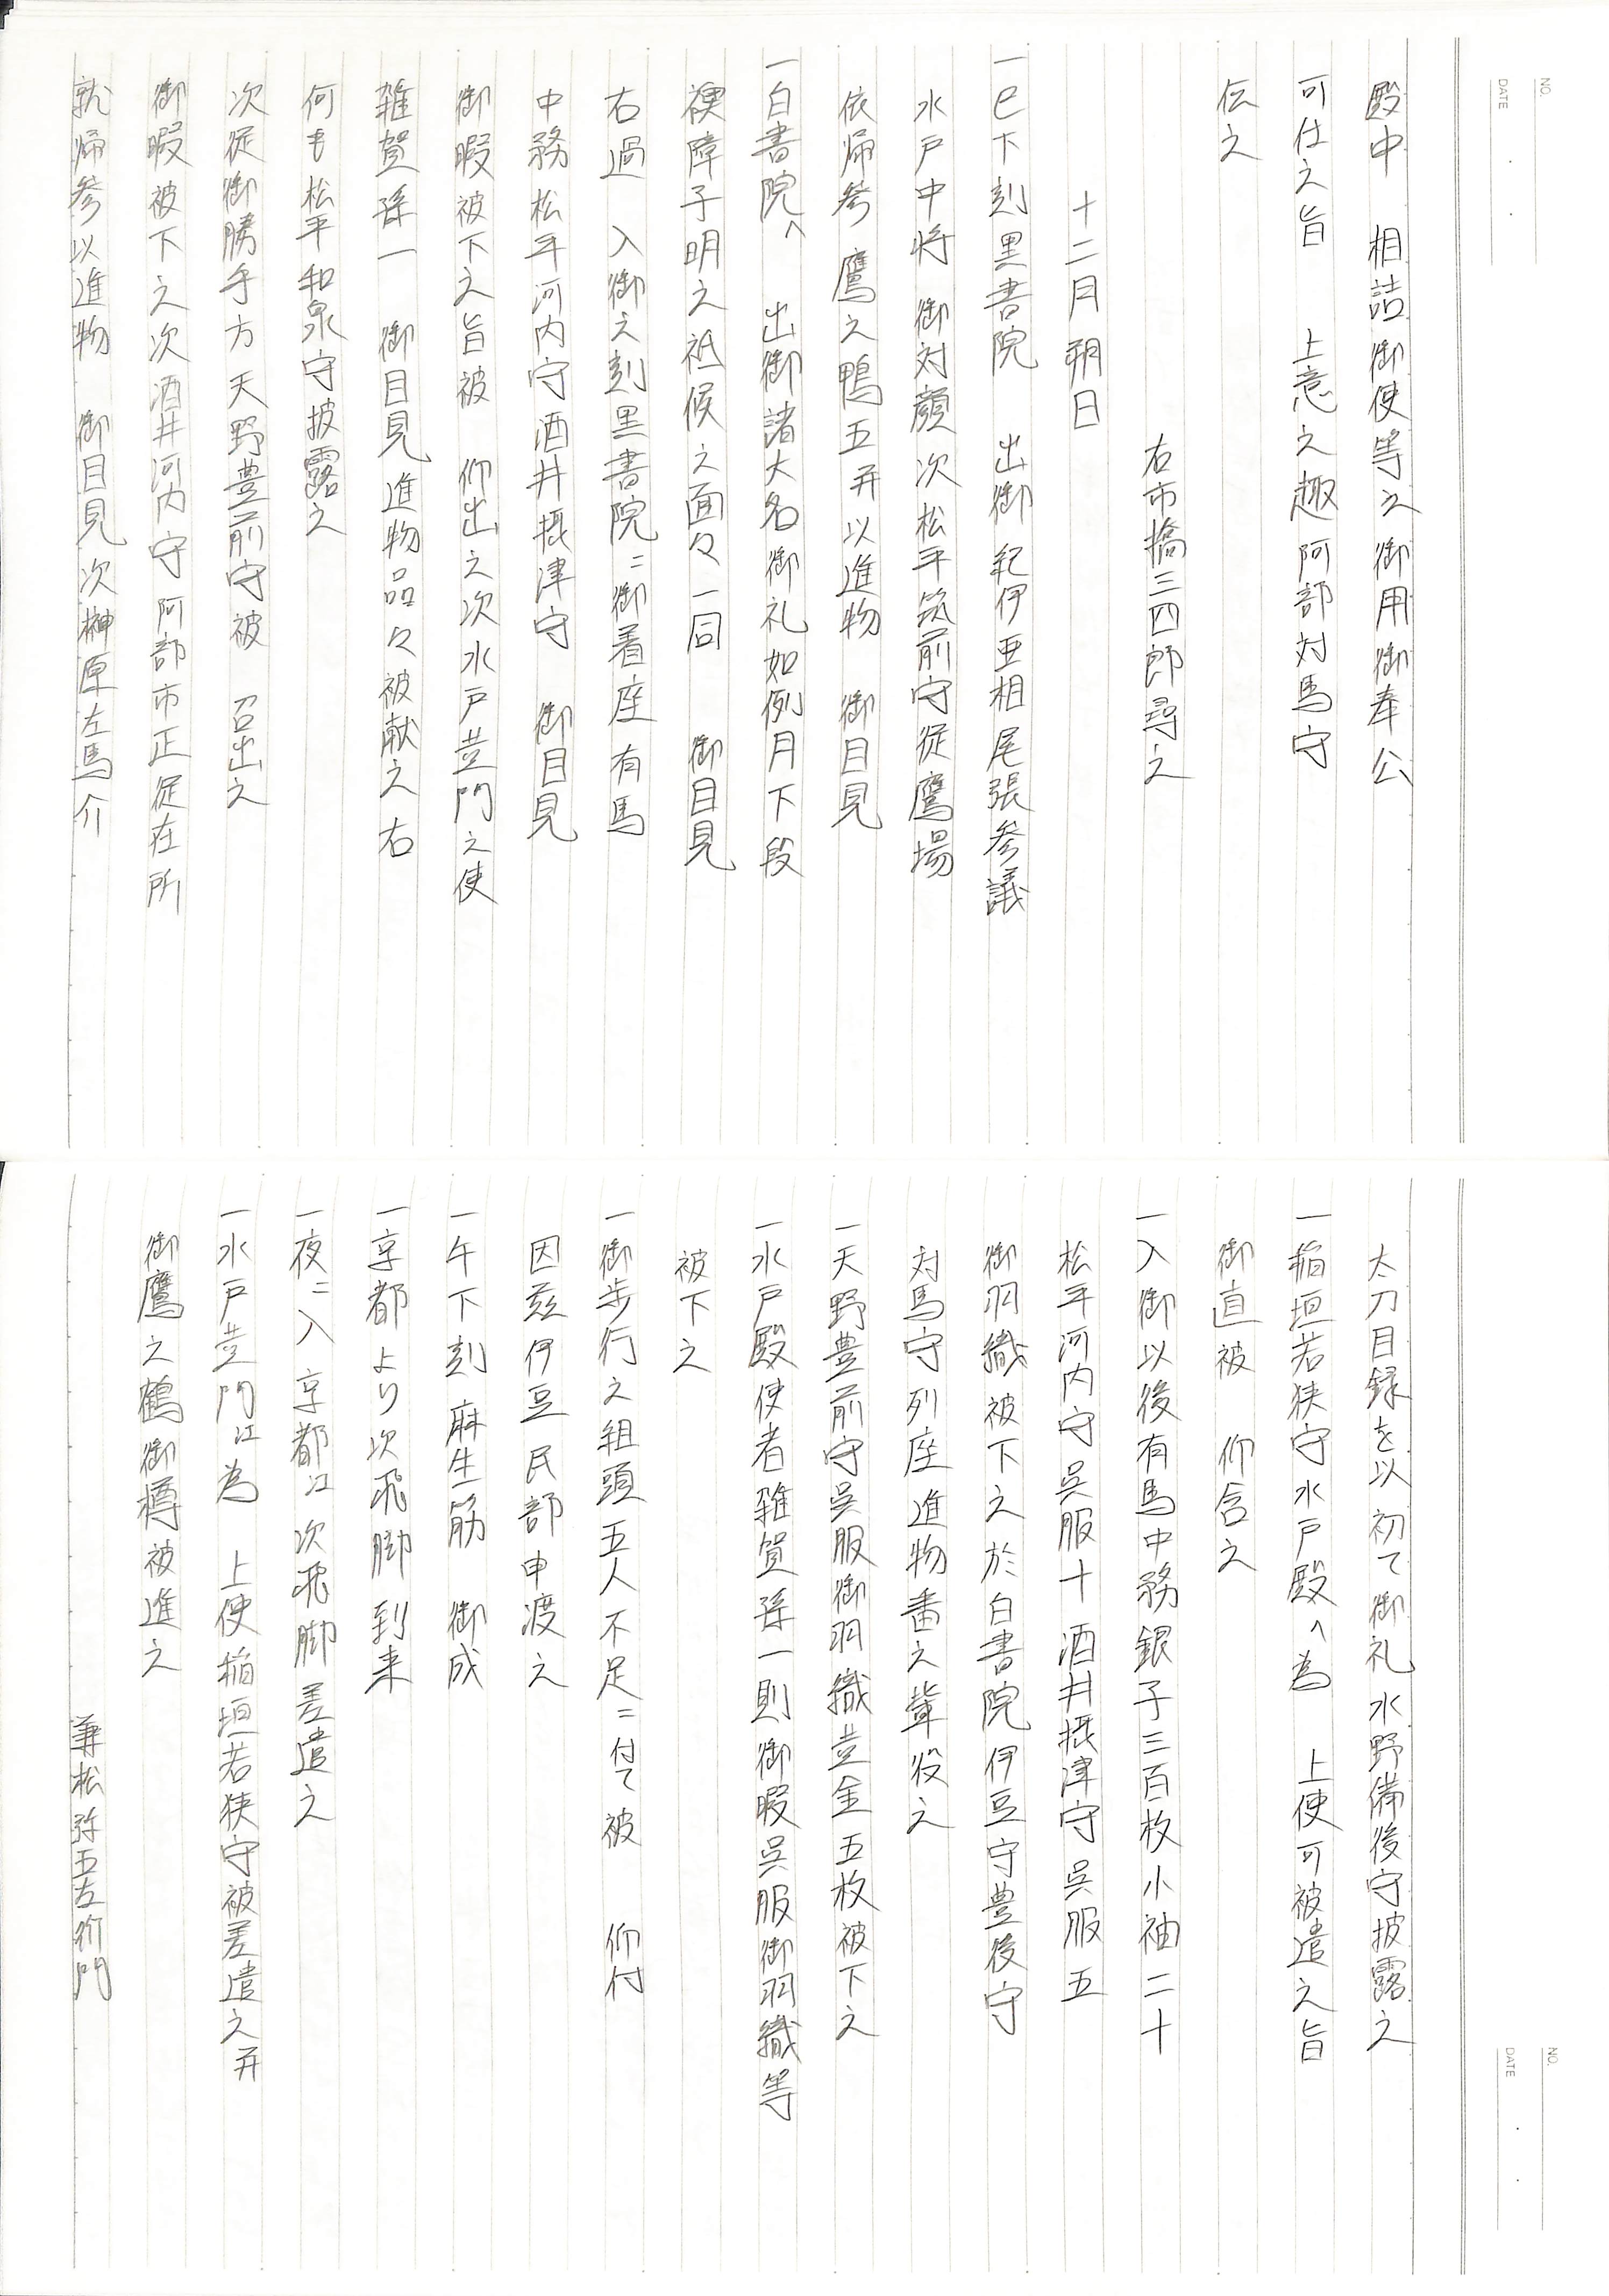 NO.
DATE
殿中　相詰御使等之御用御奉公
可仕之旨　上意之趣阿部対馬守
伝之
右市橋三四郎尋之
十二月朔日
一巳下刻黒書院　出御紀伊亜相尾張参議
水戸中将　御対顔次松平筑前守従鷹場
依帰参鷹之鴨五并以進物　御目見
一白書院へ　出御諸大名御礼如例月下段
襖障子明之祗候之面々一同　御目見
右過　入御之刻黒書院ニ御着座有馬
中務松平河内守酒井摂津守　御目見
御暇被下之旨被　仰出之次水戸黄門之使
雑賀孫一　御目見進物品々被献之右
何も松平和泉守披露之
次従御勝手方天野豊前守被　召出之
御暇被下之次酒井河内守阿部市正従在所
就帰参以進物　御目見次榊原左馬介
NO.
DATE
太刀目録を以初て御礼水野備後守披露之
一稲垣若狭守水戸殿へ為　上使可被遣之旨
御直被　仰含之
一入御以後有馬中務銀子三百枚小袖二十
松平河内守呉服十酒井摂津守呉服五
御羽織被下之於白書院伊豆守豊後守
対馬守列座進物番之輩役之
一天野豊前守呉服御羽織並金五枚被下之
一水戸殿使者雑賀孫一則御暇呉服御羽織等
被下之
一御歩行之組頭五人不足ニ付て被　仰付
因茲伊豆民部申渡之
一午下刻麻生筋　御成
一京都より次飛脚到来
一夜ニ入京都江次飛脚差遣之
一水戸黄門江為　上使稲垣若狭守被差遣之并
御鷹之鶴御樽被進之
兼松弥五左衛門